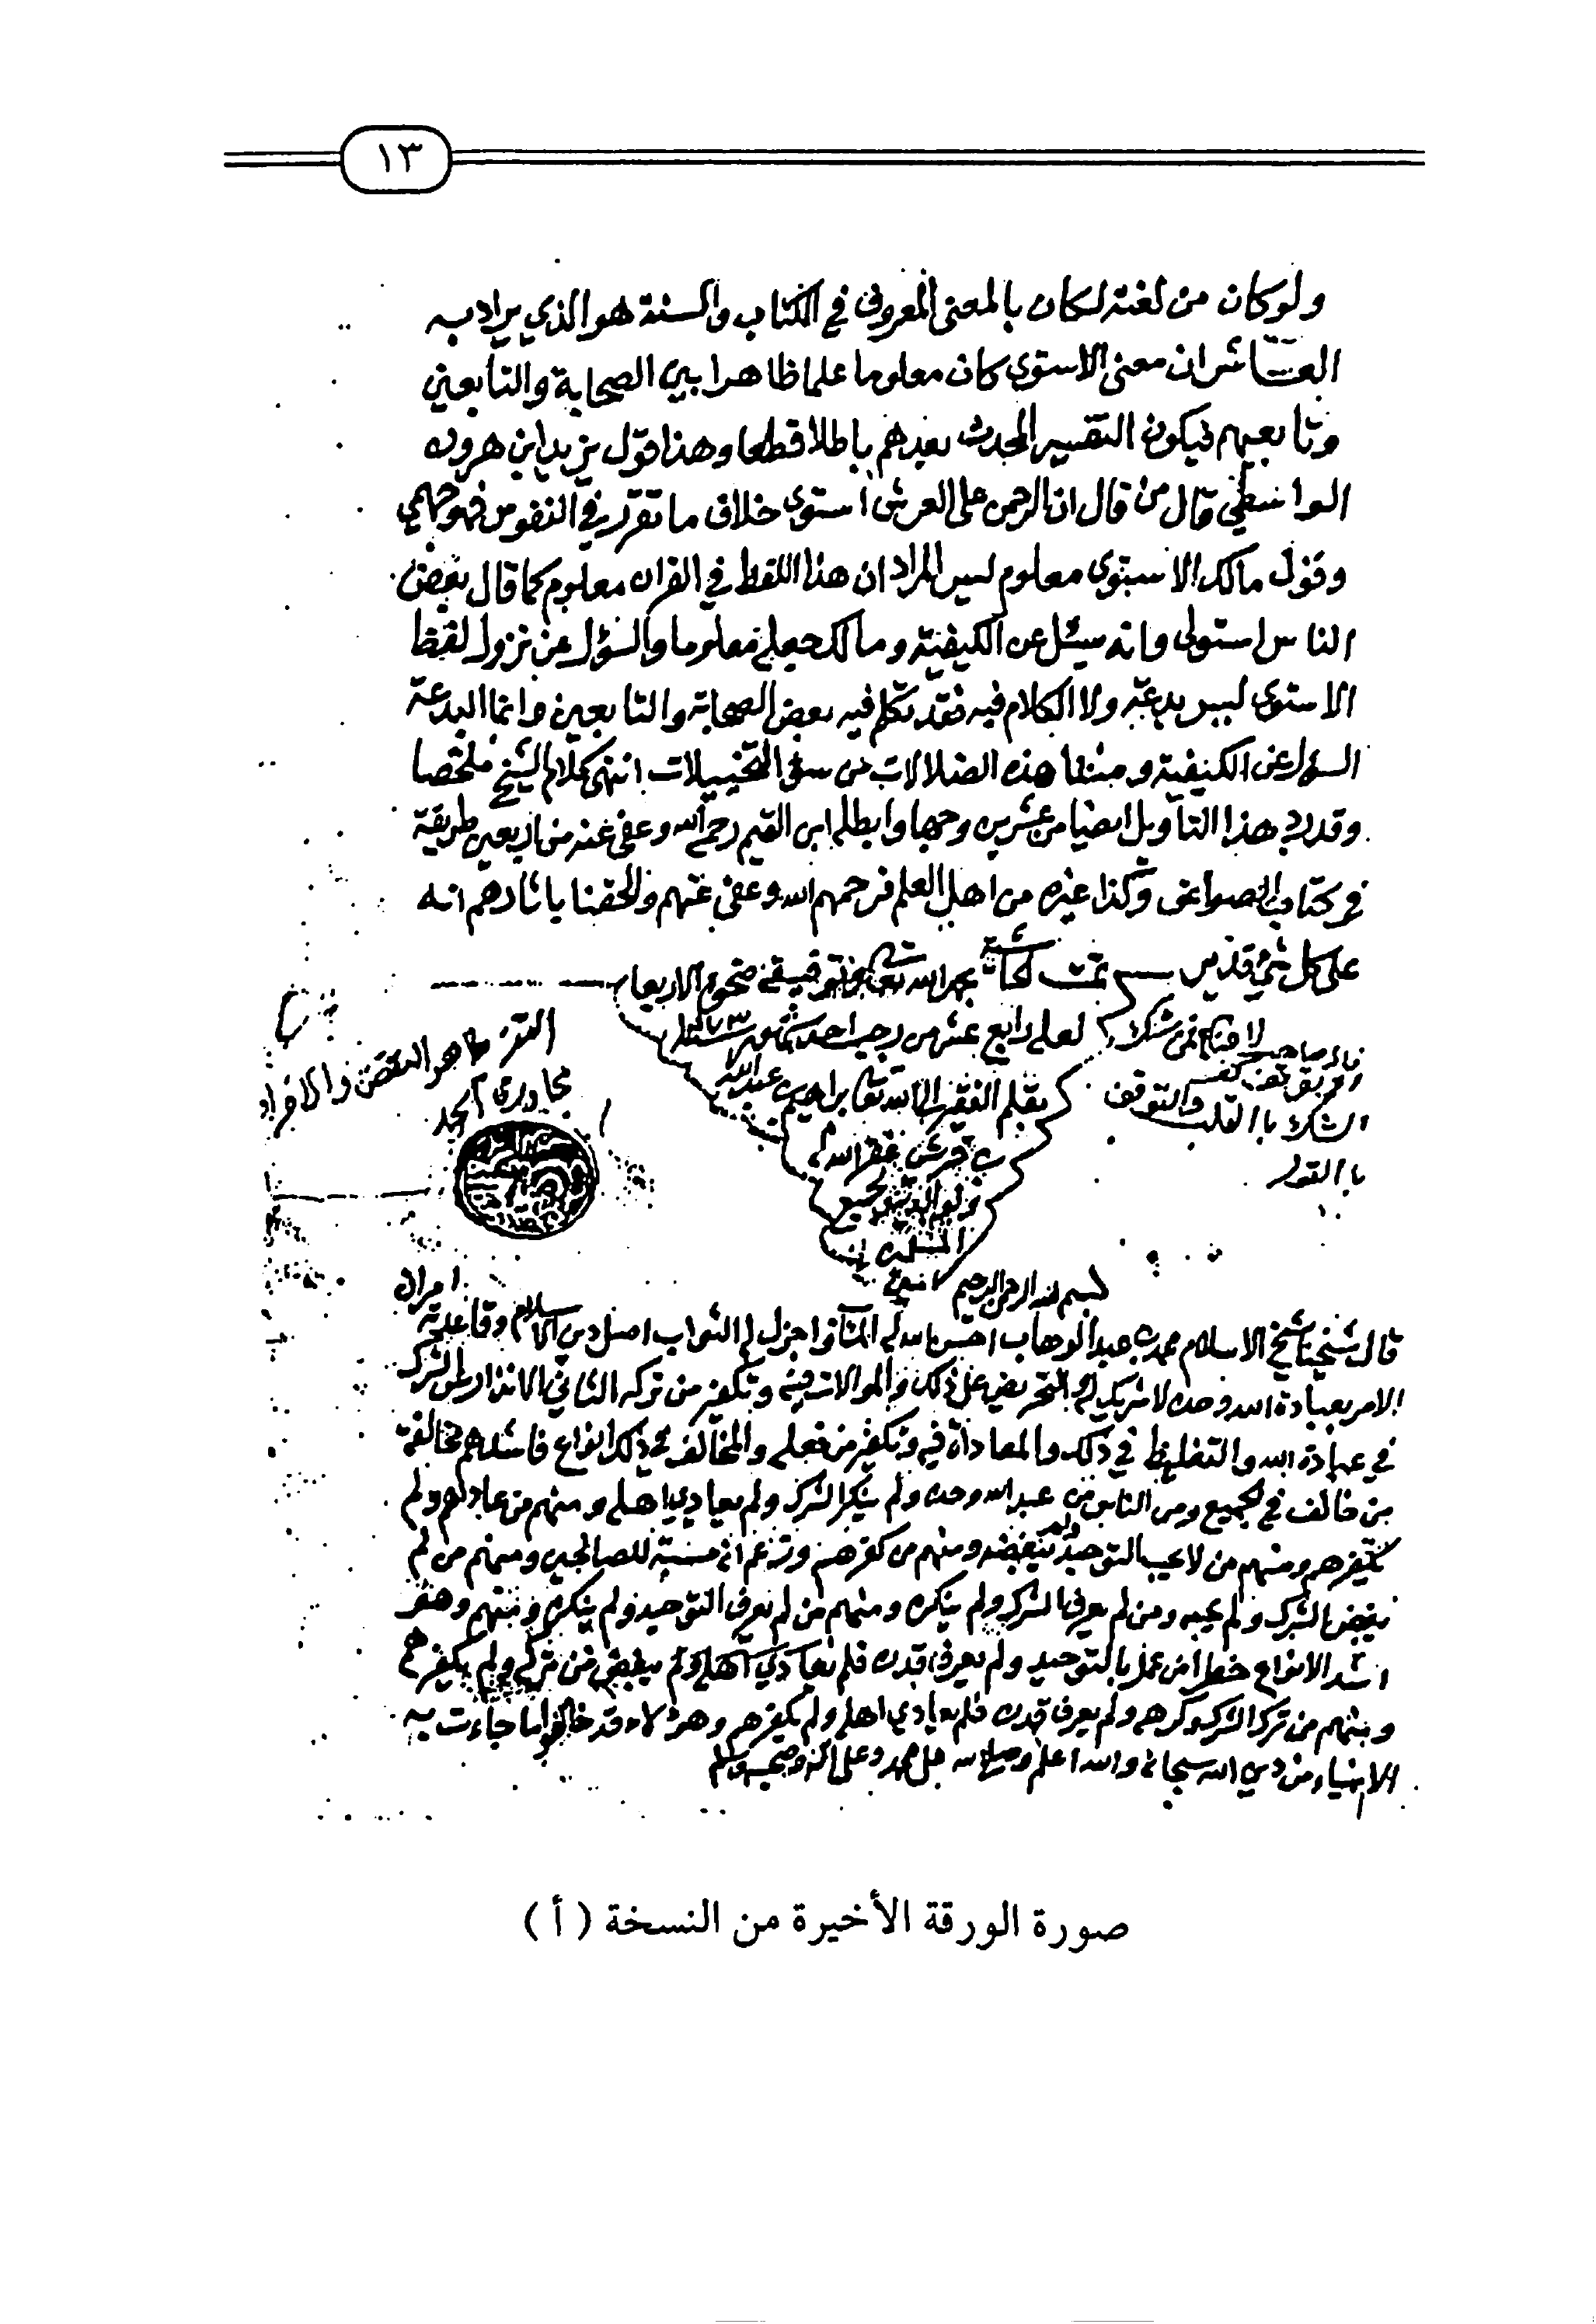 ١٣
ولوكان من لغته لكان بالمعنى المعروف في الكتاب والسنة هو الذي يراد به
العاشر ان معنى الاستوى كان معلوما علما ظاهرا بين الصحابة والتابعين
وتابعيهم فيكون التفسير المحدث بعدهم باطلا قطعا وهذا قول يزيد ابن هرون
الواسطي قال من قال ان الرحمن على العرش استوى خلاف ما تقرر في النفوس فهو جهمي
وقول مالك الاستوى معلوم ليس المراد ان هذا اللفظ في القران معلوم كما قال بعض
الناس استولى وانه سئل عن الكيفية ومالك جعلها معلوما والسؤل عن نزول لفظ
الاستوى ليس بدعة ولا الكلام فيه فقد تكلم فيه بعض الصحابة والتابعين وانما البدعة
السؤل عن الكيفية ومنشا هذه الضلالات من سوء التخييلات انتهى كلام الشيخ ملخصا
وقد رد هذا التأويل ايضا من عشرين وجها وابطله ابن القيم رحمه الله وعفى عنه من اربعين طريقة
في كتاب الصواعق وكذا غيره من اهل العلم فرحمهم الله وعفى عنهم والحقنا باثارهم انه
على كل شيء قدير تمت بحمد الله وتوفيقه ضحوة الاربعاء
لعله رابع عشر من رجب احد شهور سنة
بقلم الفقير الى الله تعالى ابراهيم عبد الله
غفر الله له
ولوالديه ولجميع
المسلمين
الشك با القلب والتوقف
با القول
بسم الله الرحمن الرحيم
امران
قال شيخنا شيخ الاسلام محمد بن عبد الوهاب احسن الله له المئاب واجزل له الثواب اصل دين الاسلام وقاعدته
الامر بعبادة الله وحده لا شريك له والتحريض على ذلك والموالات فيه وتكفير من تركه الثاني الانذار عن الشرك
في عبادة الله والتغليظ في ذلك والمعاداة فيه وتكفير من فعله والمخالف في ذلك انواع فاشدهم مخالفة
من خالف في الجميع ومن الناس من عبد الله وحده ولم ينكر الشرك ولم يعادي اهله ومنهم من عاداهم ولم
يكفرهم ومنهم من لا يحب التوحيد ولم يبغضه ومنهم من كفرهم وزعم انه مسبة للصالحين ومنهم من لم
يبغض الشرك ولم يحبه ومن لم يعرف الشرك ولم ينكره ومنهم من لم يعرف التوحيد ولم ينكره ومنهم وهو
اشد الانواع خطرا من عمل بالتوحيد ولم يعرف قدره فلم يعادي اهله ولم يبغض من تركه ولم يكفرهم
ومنهم من ترك الشرك وكرهه ولم يعرف قدره فلم يعادي اهله ولم يكفرهم وهؤلاء قد خالفوا ما جاءت به
الانبياء من دين الله سبحانه والله اعلم وصلى الله على محمد وعلى اله وصحبه وسلم
صورة الورقة الأخيرة من النسخة ( أ )